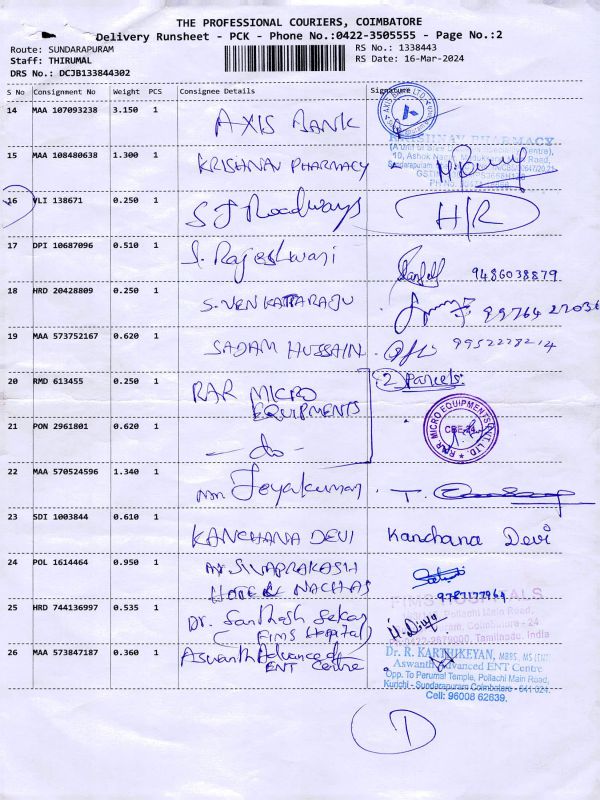 THE PROFESSIONAL COURIERS, COIMBATORE
Delivery Runsheet - PCK - Phone No.:0422-3505555 - Page No.:2
Route: SUNDARAPURAM
RS No.: 1338443
Staff: THIRUMAL
RS Date: 16-Mar-2024
DRS No.: DCJB133844302
S No Consignment No Weight PCS Consignee Details Signature
14 MAA 107093238 3.150 1 AXIS BANK
AXIS LTD
15 MAA 108480638 1.300 1 KRISHNAV PHARMACY
KRISHNAV PHARMACY
16 VLI 138671 0.250 1 S J Roadways H/R
17 DPI 10687096 0.510 1 S. Rajeshwari 9486038879
18 HRD 20428809 0.250 1 S. VENKATARAJU
19 MAA 573752167 0.620 1 SADAM HUSSAIN 9952278214
20 RMD 613455 0.250 1 RAR MICRO EQUIPMENTS 2 Parcels
21 PON 2961801 0.620 1 - do -
RAR MICRO EQUIPMENTS PVT LTD
CBE-24
22 MAA 570524596 1.340 1 Jeyakumar
23 SDI 1003844 0.610 1 KANCHANA DEVI Kanchana Devi
24 POL 1614464 0.950 1 SIVAPRAKASH
25 HRD 744136997 0.535 1 Dr. Santhosh Sekar
(FIMS Hospital)
FIMS HOSPITALS
Pollachi Main Road,
Coimbatore - 24
Tamilnadu, India
26 MAA 573847187 0.360 1 Aswanth Advanced
ENT Centre
Dr. R. KARTHIKEYAN, MBBS, MS (ENT)
Aswanth Advanced ENT Centre
Opp. To Perumal Temple, Pollachi Main Road,
Kurichi - Sundarapuram Coimbatore - 641 024.
Cell: 96008 62639.
1